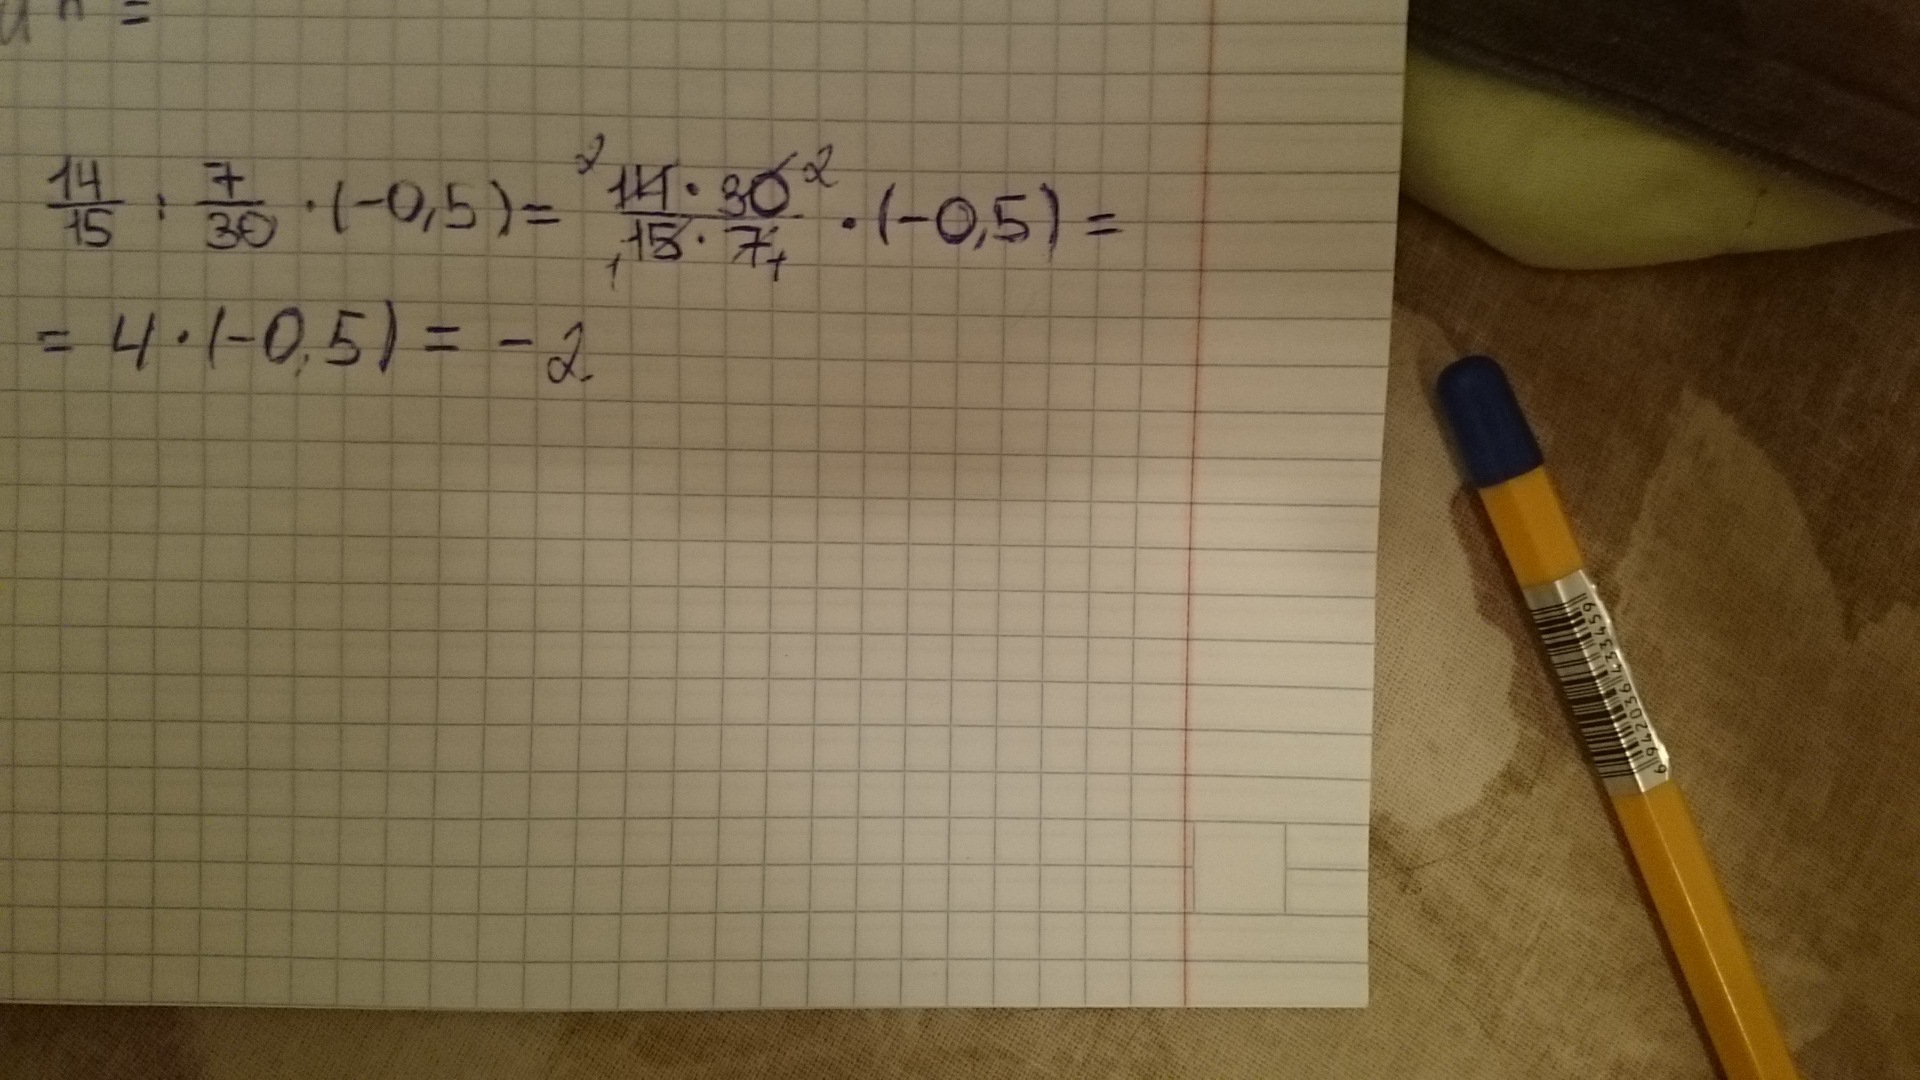 14/15 : 7/30 · (-0,5) = ²14 · 30² / ₁15 · 7₁ · (-0,5) =
= 4 · (-0,5) = -2
6942036433459